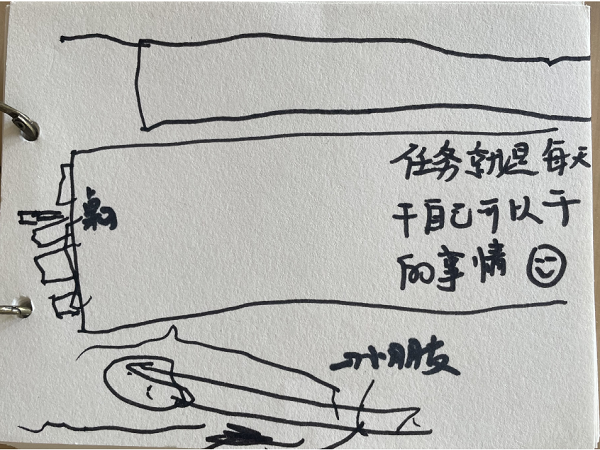 任务就是每天
干自己可以干
的事情
小朋友